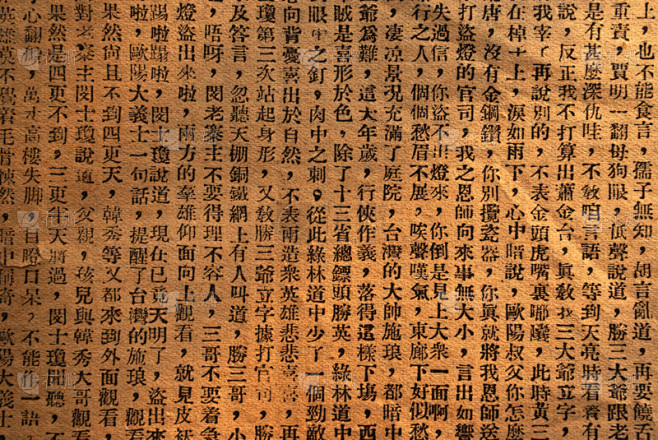 上，也不能食言，孺子無知，胡言亂道，再要饒舌
重責，賈明一翻母狗眼，低聲說道，勝三大爺跟老
是有甚麼深仇哇，不敎咱言語，等到天亮時看看有
說，反正我不打算出蕭金台，眞敎三大爺立字，
我宰了再說別的，不表金頭虎嘴裏嘟囔，此時黃三
在棹子上，淚如雨下，心中暗說，歐陽叔父你怎麼
唐，沒有金鋼鑽，你別攬瓷器，你眞就將我恩師送
打盜燈的官司，我之恩師向來事無大小，言出如響
失過信，你盜不出燈來，你倒是見上大衆一面啊，
行之人，個個愁眉不展，唉聲嘆氣，東廊下好似愁
，淒凉景况充滿了庭院，台灣的大師施琅，都暗中
爺爲難，這大年歲，行俠作義，落得這樣下塲，西
賊是喜形於色，除了十三省總鏢頭勝英，綠林道中
眼中之釘，肉中之刺，從此綠林道中少了一個勁敵
向背憂喜出於自然，不表兩造衆英雄悲悲喜喜，再
瓊第三次站起身形，又敎勝三爺立字據打官司，勝
及答言，忽聽天棚銅鐵網上有人叫道，勝三哥，小
，唔呀，閔老寨主不要得理不容人，三哥不要着急
燈盜出來啦，兩方的羣雄仰面向上觀看，就見皮襖
踢啦蹋啦，閔士瓊說道，現在已竟天明了，盜出來
啦，歐陽大義士一句話，提醒了台灣的施琅，觀看
果然尚且不到四更天，韓秀等又都來到外面觀看，
對老寨主閔士瓊說道，父親，孩兒與韓秀大哥觀看
果然是四更不到，三更天將過，閔士瓊聞聽，不
心翻個，萬丈高樓失脚，自瞪口呆，不能作一語
英雄莫不覺着毛骨悚然，暗中稱奇，歐陽大義士